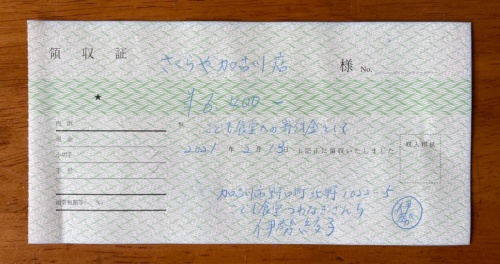 領収証
さくらや加古川店 様 No.
★
¥6,400−
但 こども食堂への寄付金として
2021年2月13日 上記正に領収いたしました
内訳
現金
小切手
手形
消費税額等( %)
収入印紙
加古川市野口町北野1022-5
こども食堂つねなぎさんち
伊勢